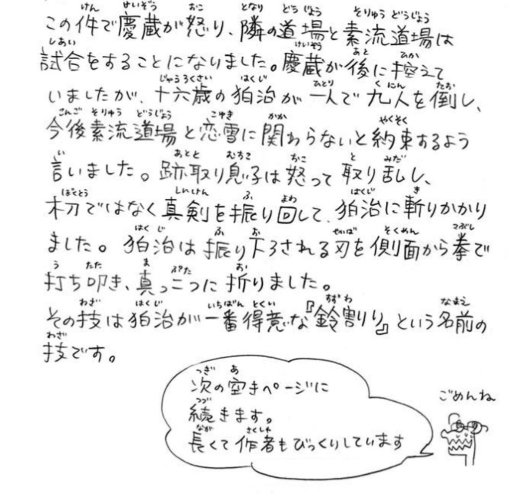 この件で慶蔵が怒り、隣の道場と素流道場は
試合をすることになりました。慶蔵が後に控えて
いましたが、十六歳の狛治が一人で九人を倒し、
今後素流道場と恋雪に関わらないと約束するよう
言いました。跡取り息子は怒って取り乱し、
木刀ではなく真剣を振り回して、狛治に斬りかかり
ました。狛治は振り下ろされる刃を側面から拳で
打ち叩き、真っ二つに折りました。
その技は狛治が一番得意な『鈴割り』という名前の
技です。
次の空きページに
続きます。
長くて作者もびっくりしています
ごめんね